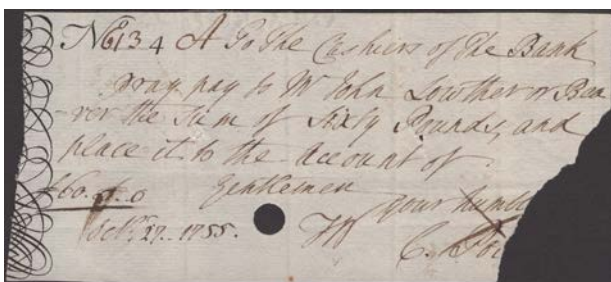 No 134 A To The Cashiers of The Bank
pray pay to Mr John Lowther or Bea
rer the Sum of Sixty Pounds, and
place it to the account of
£60.0.0 Gentlemen
your humbl
Octr. 29. 1755.
C.